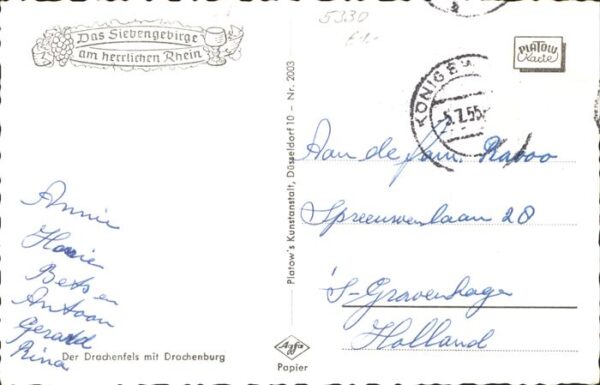 Das Siebengebirge
am herrlichen Rhein
5330
PLATOW
Karte
KÖNIGSW
-5.7.55-
Platow's Kunstanstalt, Düsseldorf 10 - Nr. 2003
Aan de fam. Ravoo
Spreeuwenlaan 28
's-Gravenhage
Holland
Annie
Bets en
Antoon
Gerard
Rina
Der Drachenfels mit Drachenburg
Agfa
Papier